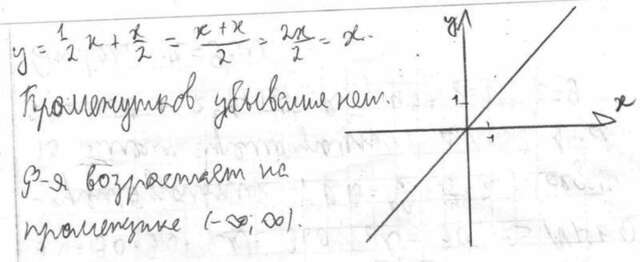 y = 1/2 x + x/2 = (x + x)/2 = 2x/2 = x.
Промежутков убывания нет.
Ф-я возрастает на
промежутке (-∞; ∞).
y
1
x
1